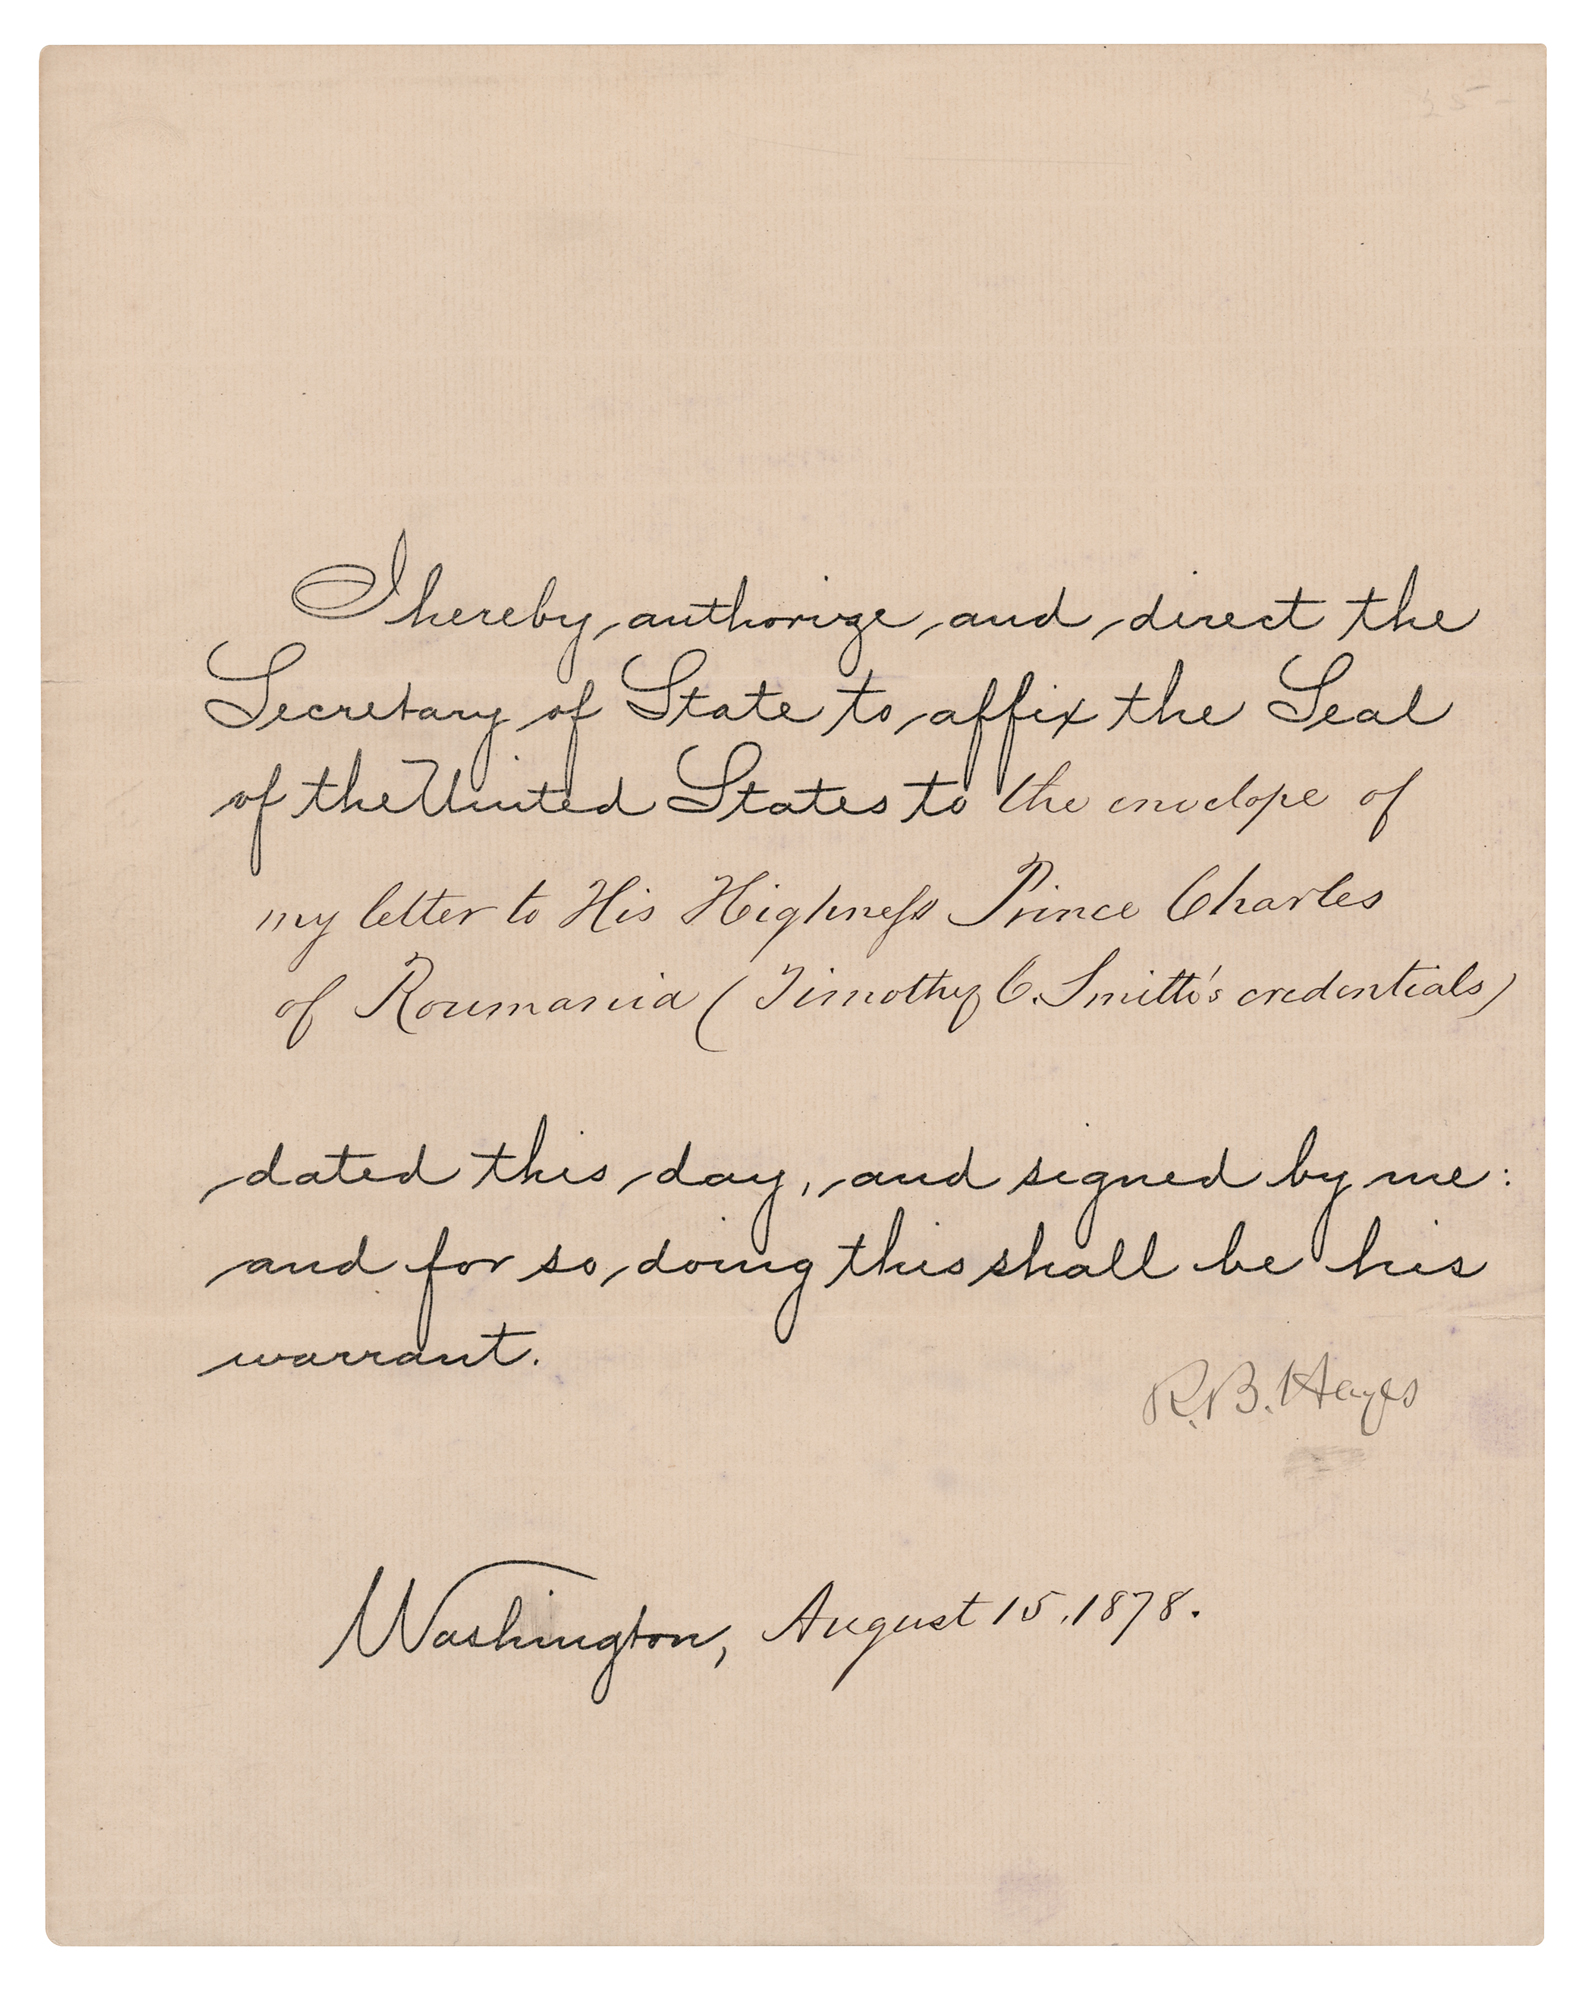 I hereby authorize and direct the
Secretary of State to affix the Seal
of the United States to the envelope of
my letter to His Highness Prince Charles
of Roumania (Timothy C. Smith's credentials)
dated this day, and signed by me:
and for so doing this shall be his
warrant.
R.B. Hayes
Washington, August 15, 1878.